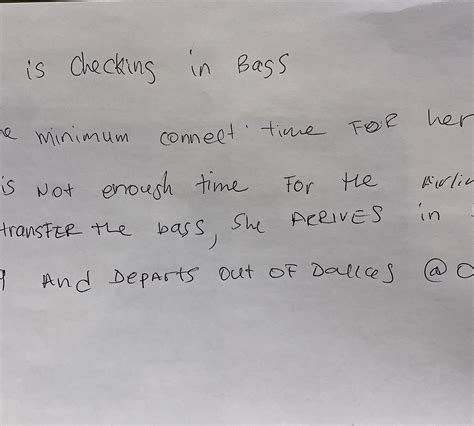 is checking in Bags
minimum connect time FOR her
is Not enough time For the Airlin
transFER the bass, She ARRIVES in
And DEPARTS Out OF Dallas @